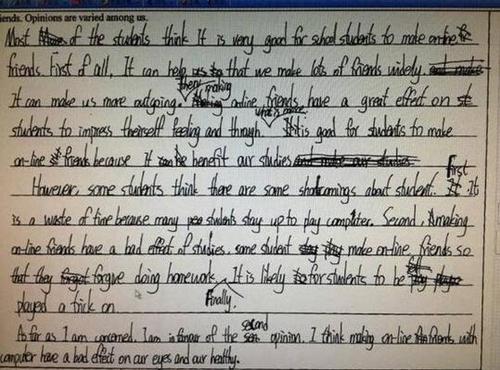 iends. Opinions are varied among us.
Most of the students think It is very good for school students to make on-line
friends. First of all, It can help that we make lots of friends widely
It can make us more outgoing. Then making online friends have a great effect on
students to impress theirself feeling and through. what's more It is good for students to make
on-line friends because It can benefit our studies
However, some students think there are some shortcomings about student. First It
is a waste of time because many students stay up to play computer. Second, making
on-line friends have a bad effect of studies. some student make on-line friends so
that they forgive doing homework. Finally. It is likely for students to be
played a trick on.
As far as I am concerned, I am in favour of the second opinion. I think making on-line friends with
computer have a bad effect on our eyes and our healthy.